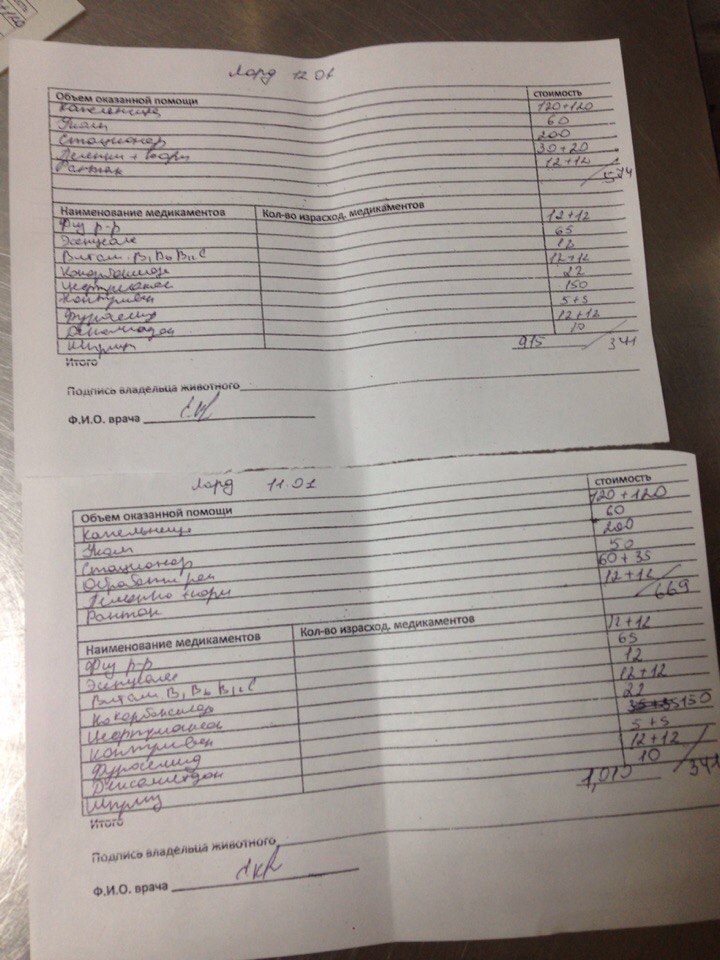 Лорд 12.01
Объем оказанной помощи стоимость
Капельница 120+120
Уколы 60
Стационар 200
Пеленки + корм 30+20
Рантак 12+12
574
Наименование медикаментов Кол-во израсход. медикаментов
Физ р-р 12+12
Эссенциале 65
Витам. B1 B6 B12 C 12
Кокарбоксилаза 12+12
22
Контривен 150
Фуросемид 5+5
12+12
Шприц 10
Итого 915 / 341
Подпись владельца животного
Ф.И.О. врача
Лорд 11.01
Объем оказанной помощи стоимость
Капельница 120+120
Уколы 60
Стационар 200
Обработка ран 50
Пеленки + корм 60+35
Рантак 12+12
669
Наименование медикаментов Кол-во израсход. медикаментов
Физ р-р 12+12
Эссенциале 65
Витам B1 B6 B12 C 12
Кокарбоксилаза 12+12
22
Контривен 150
Фуросемид 5+5
12+12
Шприц 10
Итого 1,010 / 341
Подпись владельца животного
Ф.И.О. врача